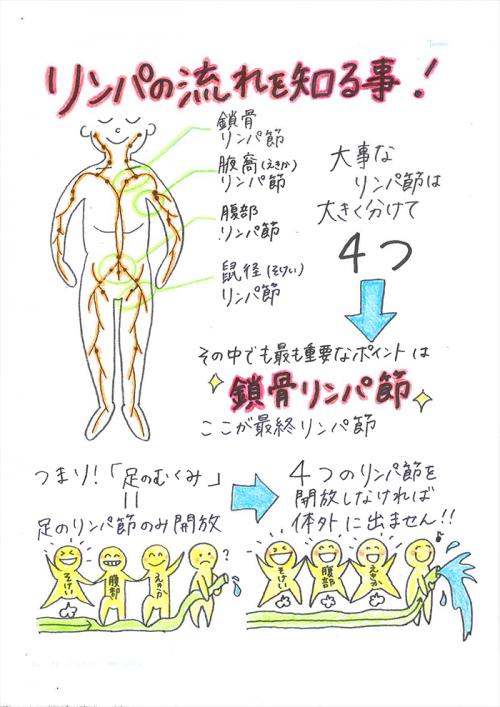 リンパの流れを知る事!
鎖骨
リンパ節
腋窩(えきか)
リンパ節
腹部
リンパ節
鼠径(そけい)
リンパ節
大事な
リンパ節は
大きく分けて
4つ
その中でも最も重要なポイントは
鎖骨リンパ節
ここが最終リンパ節
つまり!「足のむくみ」
=
足のリンパ節のみ開放
4つのリンパ節を
開放しなければ
体外に出ません!!
そけい
腹部
えきか
?
そけい
腹部
えきか